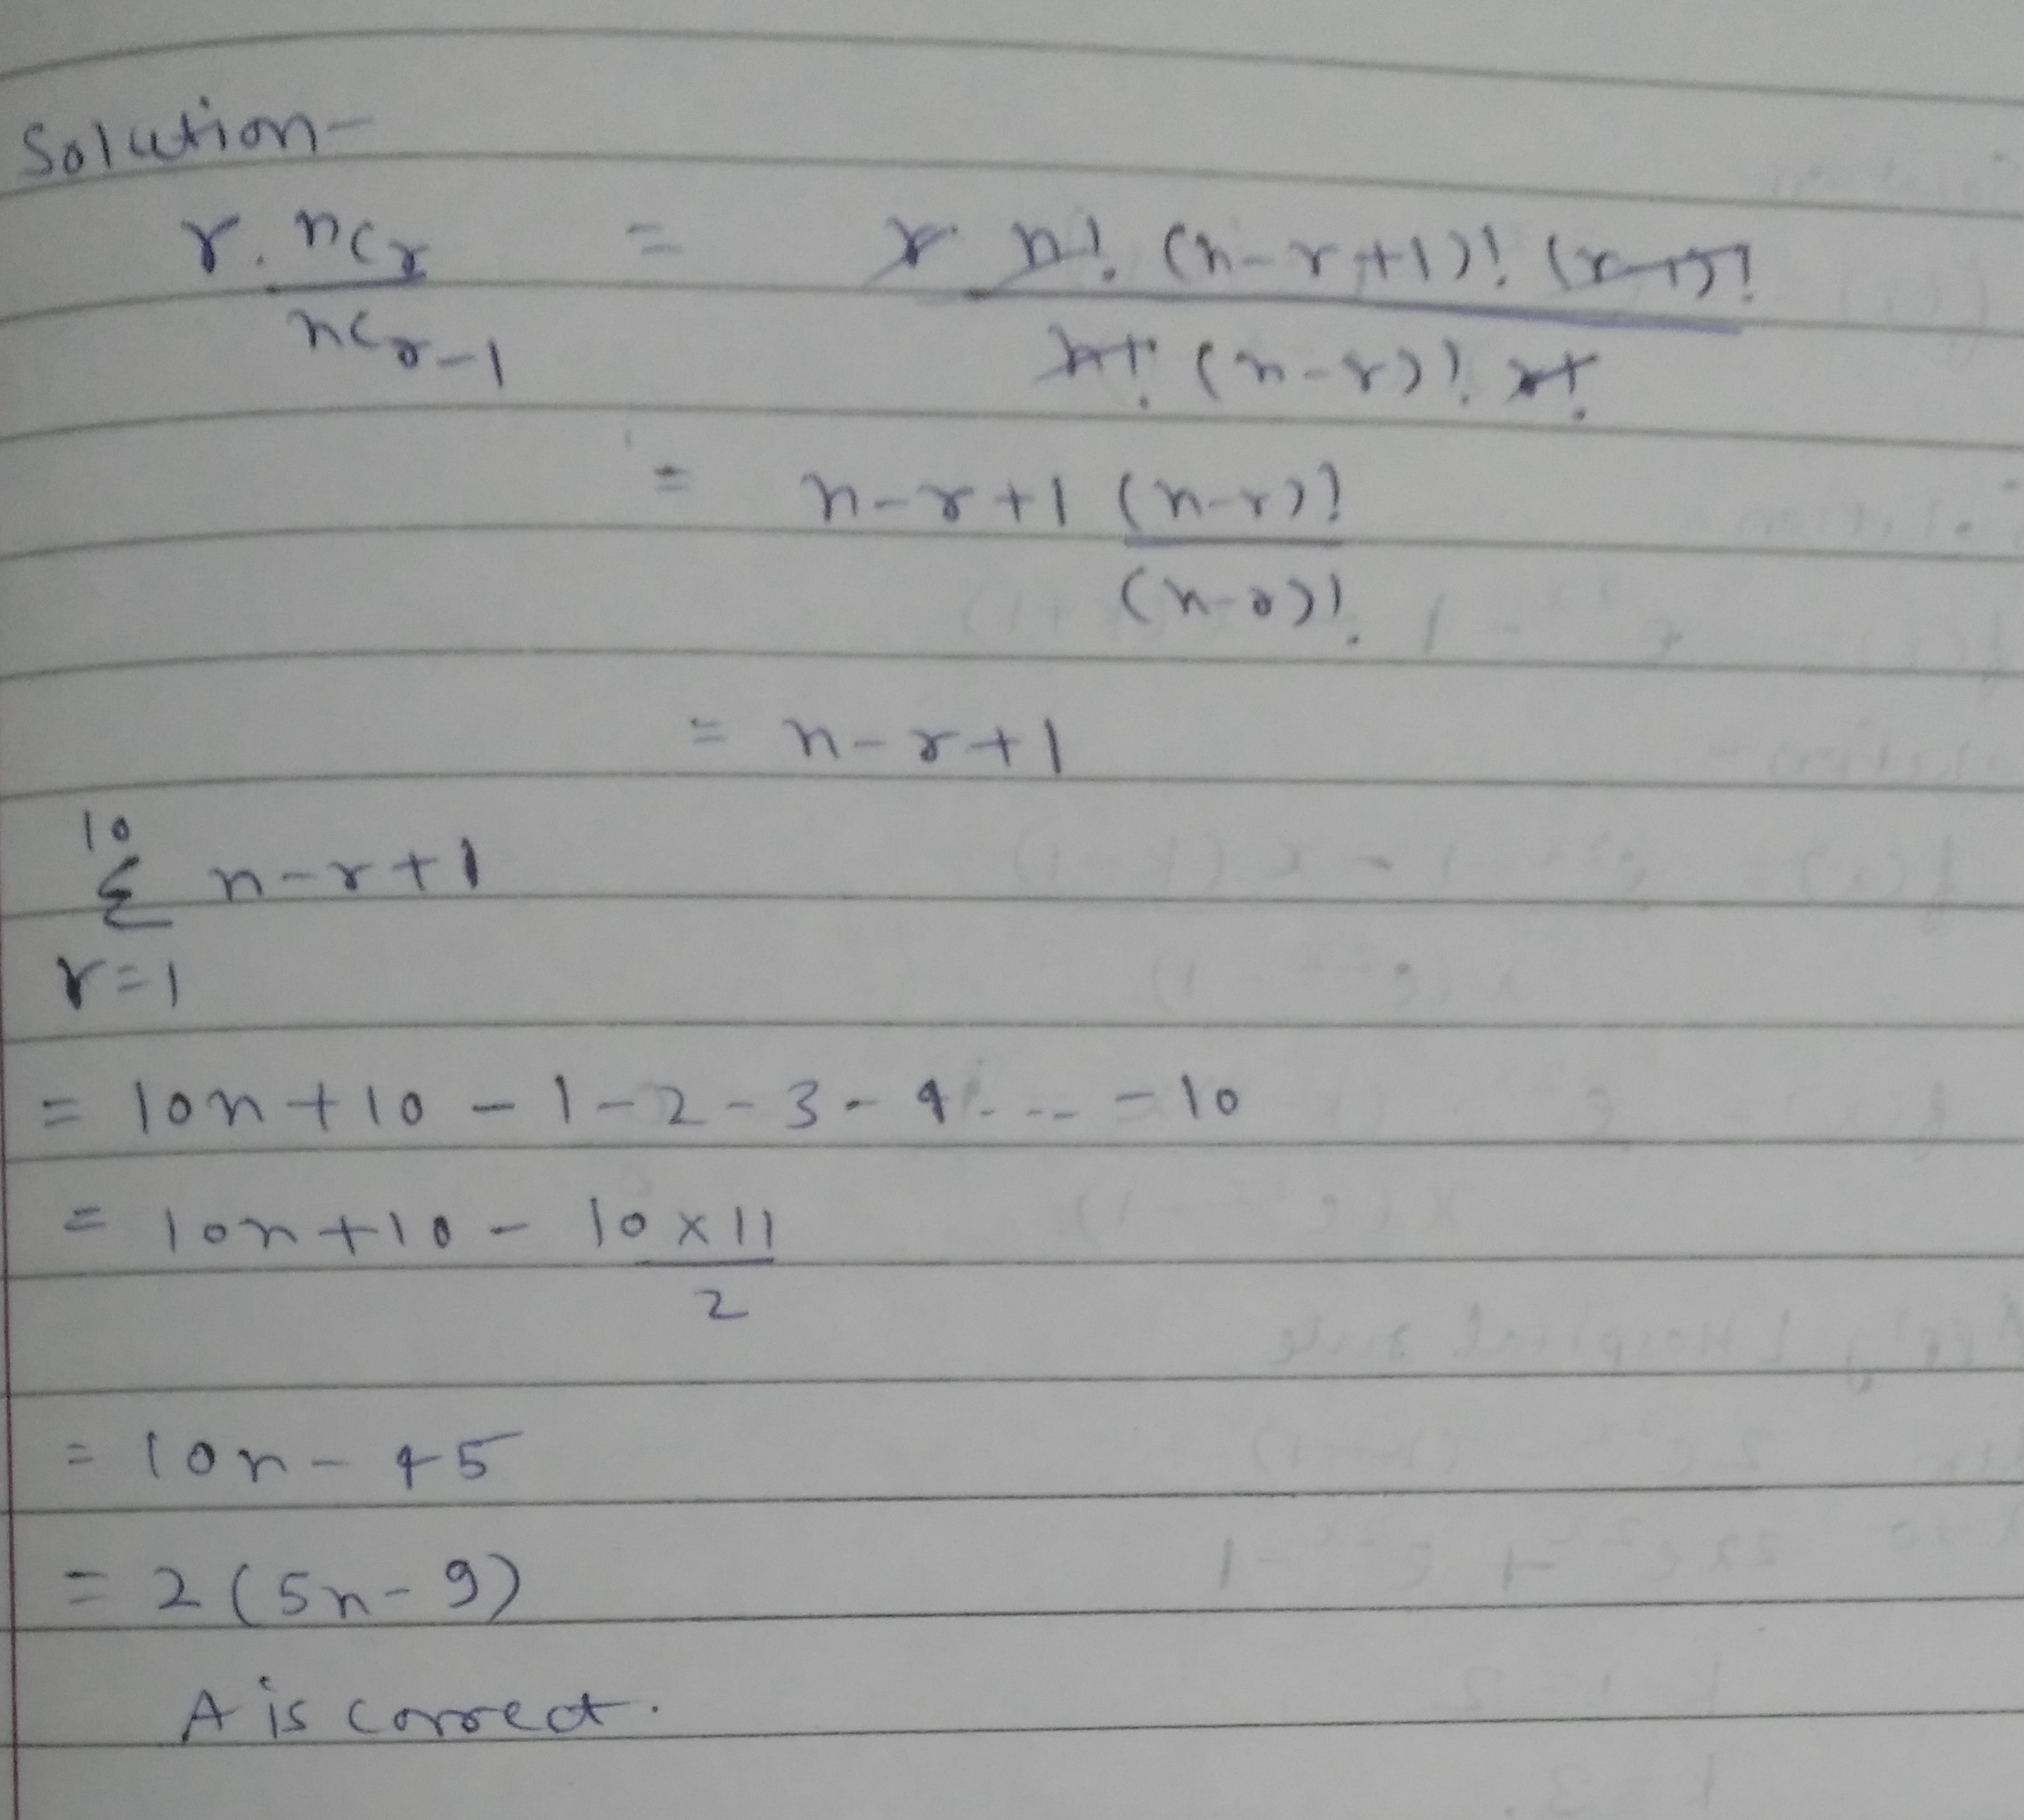 Solution-
r. nCr / nCr-1 = r n! (n-r+1)! (r-1)! / n! (n-r)! r!
= n-r+1 (n-r)! / (n-r)!
= n-r+1
10
Σ n-r+1
r=1
= 10n+10 -1-2-3-4 ... -10
= 10n+10 - 10x11 / 2
= 10n-45
= 2(5n-9)
A is correct.